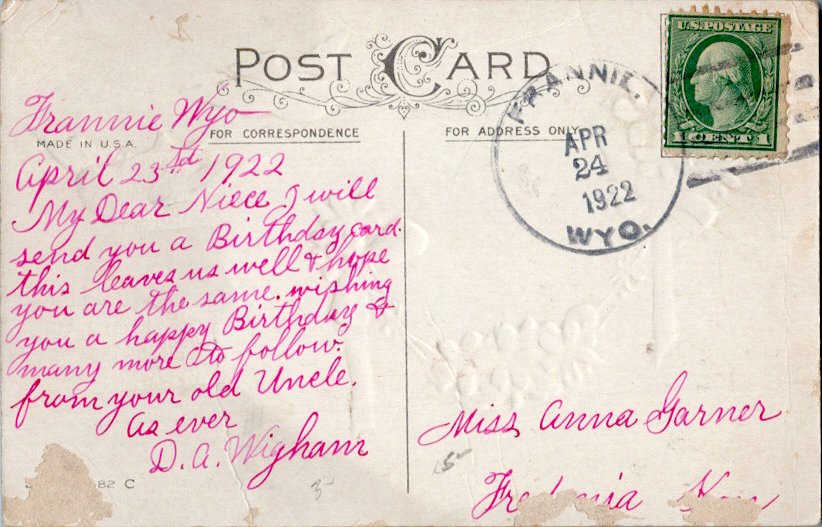 POST CARD
Frannie Wyo
MADE IN U.S.A.
FOR CORRESPONDENCE
April 23rd 1922
My Dear Niece I will
send you a Birthday card.
this leaves us well & hope
you are the same. wishing
you a happy Birthday &
many more to follow.
from your old Uncle.
as ever
D. A. Wigham
82 C
3-
FOR ADDRESS ONLY
FRANNIE.
APR
24
1922
WYO.
U.S. POSTAGE
1 CENT 1
Miss Anna Garner
15-
Fredonia